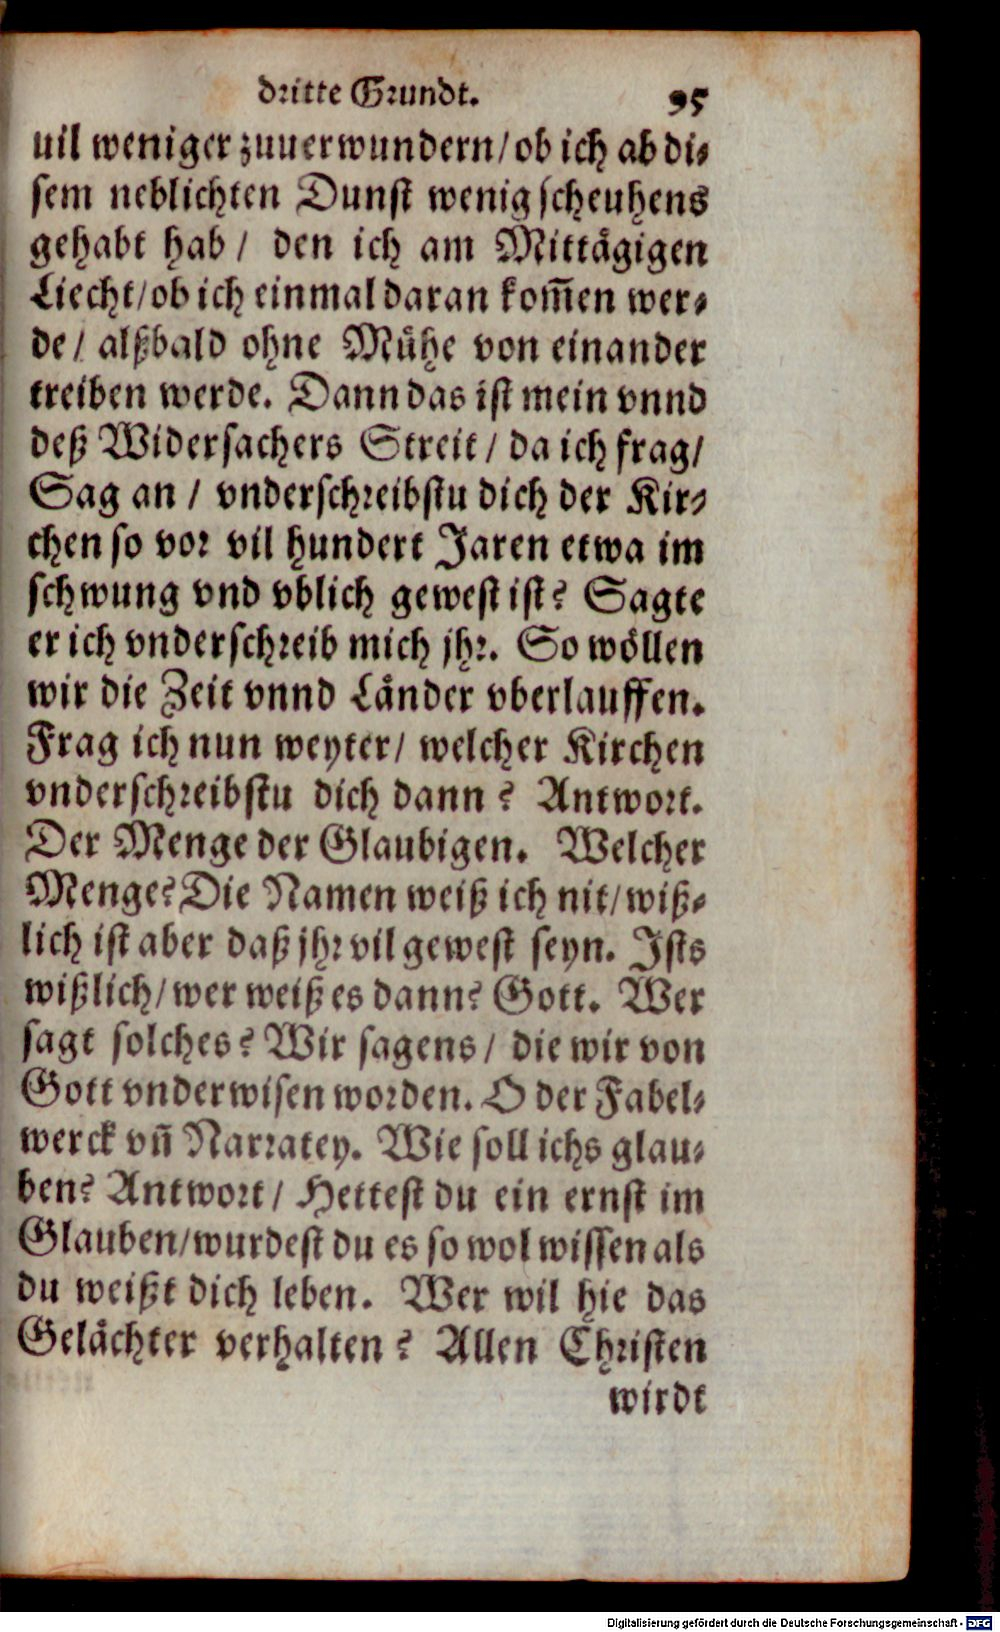 dritte Grundt. 95
uil weniger zuuerwundern/ ob ich ab di⸗
sem neblichten Dunst wenig scheuhens
gehabt hab/ den ich am Mittågigen
Liecht/ ob ich einmal daran kom̃en wer⸗
de/ alßbald ohne Můhe von einander
treiben werde. Dann das ist mein vnnd
deß Widersachers Streit/ da ich frag/
Sag an/ vnderschreibstu dich der Kir⸗
chen so vor vil hundert Jaren etwa im
schwung vnd vblich gewest ist? Sagte
er ich vnderschreib mich jhr. So wöllen
wir die Zeit vnnd Länder vberlauffen.
Frag ich nun weyter/ welcher Kirchen
vnderschreibstu dich dann? Antwort.
Der Menge der Glaubigen. Welcher
Menge? Die Namen weiß ich nit/ wiß⸗
lich ist aber daß jhr vil gewest seyn. Ists
wißlich/ wer weiß es dann? Gott. Wer
sagt solches? Wir sagens/ die wir von
Gott vnderwisen worden. O der Fabel⸗
werck vñ Narratey. Wie soll ichs glau⸗
ben? Antwort/ Hettest du ein ernst im
Glauben/ wurdest du es so wol wissen als
du weißt dich leben. Wer wil hie das
Gelåchter verhalten? Allen Christen
wirdt
Digitalisierung gefördert durch die Deutsche Forschungsgemeinschaft - DFG